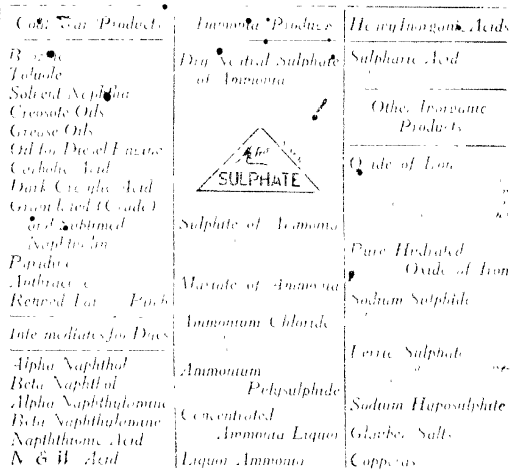 Coal Tar Products
Toluole
Solvent Naphtha
Creosote Oils
Grease Oils
Oil for Diesel Engine
Carbolic Acid
Dark Cresylic Acid
and Sublimed
Naphthalin
Pyridine
Anthracene
Refined Tar Pitch
Intermediates for Dyes
Alpha Naphthol
Beta Naphthol
Alpha Naphthylamine
Beta Naphthylamine
Naphthionic Acid
N & W Acid
Ammonia Products
Dry Neutral Sulphate
of Ammonia
SULPHATE
Sulphite of Ammonia
Muriate of Ammonia
Ammonium Chloride
Ammonium
Polysulphide
Concentrated
Ammonia Liquor
Liquor Ammonia
Heavy Inorganic Acids
Sulphuric Acid
Other Inorganic
Products
Oxide of Iron
Pure Hydrated
Oxide of Iron
Sodium Sulphide
Ferric Sulphate
Sodium Hyposulphite
Glauber Salts
Copperas